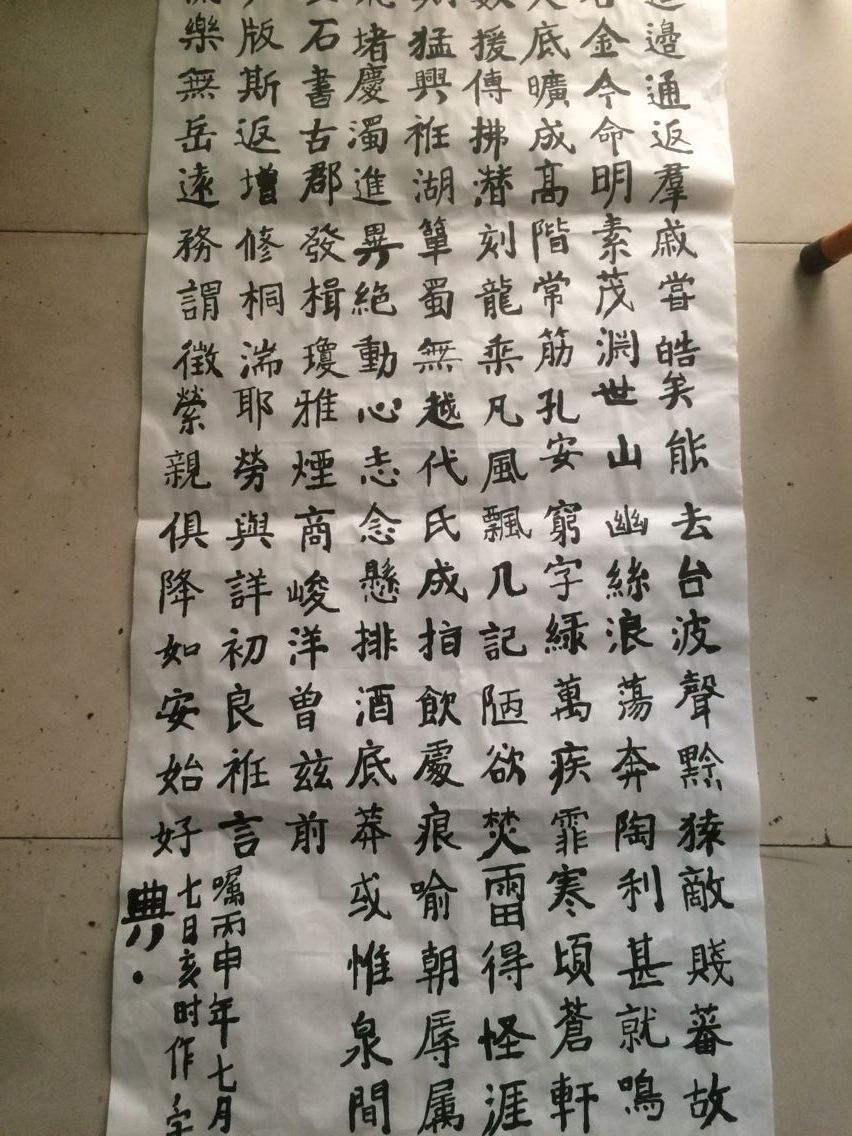 邊通返羣戚嘗皓矣能去台波聲黥猿敵賤蕃故
金今命明素茂淵世山幽絲浪蕩奔陶利甚就鳴
底曠成高階常筋孔安窮字綠萬疾霏寒頃蒼軒
援傳拂潜刻龍乘凡風飄几記陋欲焚雷得怪涯
猛興袵湖簞蜀無越代氏成指飲處痕喻朝辱属
堵慶濁進異絕動心志念懸排酒底莽或惟泉間
石書古郡發楫瓊雅煙商峻洋曾兹前
版斯返增修桐湍耶勞與詳初良袵言
樂無岳遠務謂徵縈親俱降如安始好
嘱丙申年七月
七日亥时作
典